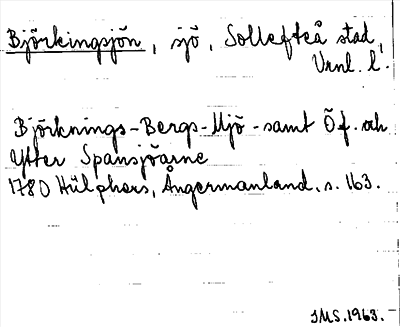 Björkingsjön, sjö, Sollefteå stad,
Vrnl. l.
Björknings-Bergs-Mjö-samt Öf. och
Ytter Spansjöarne
1780 Hülphers, Ångermanland, s. 163.
JMS. 1963.